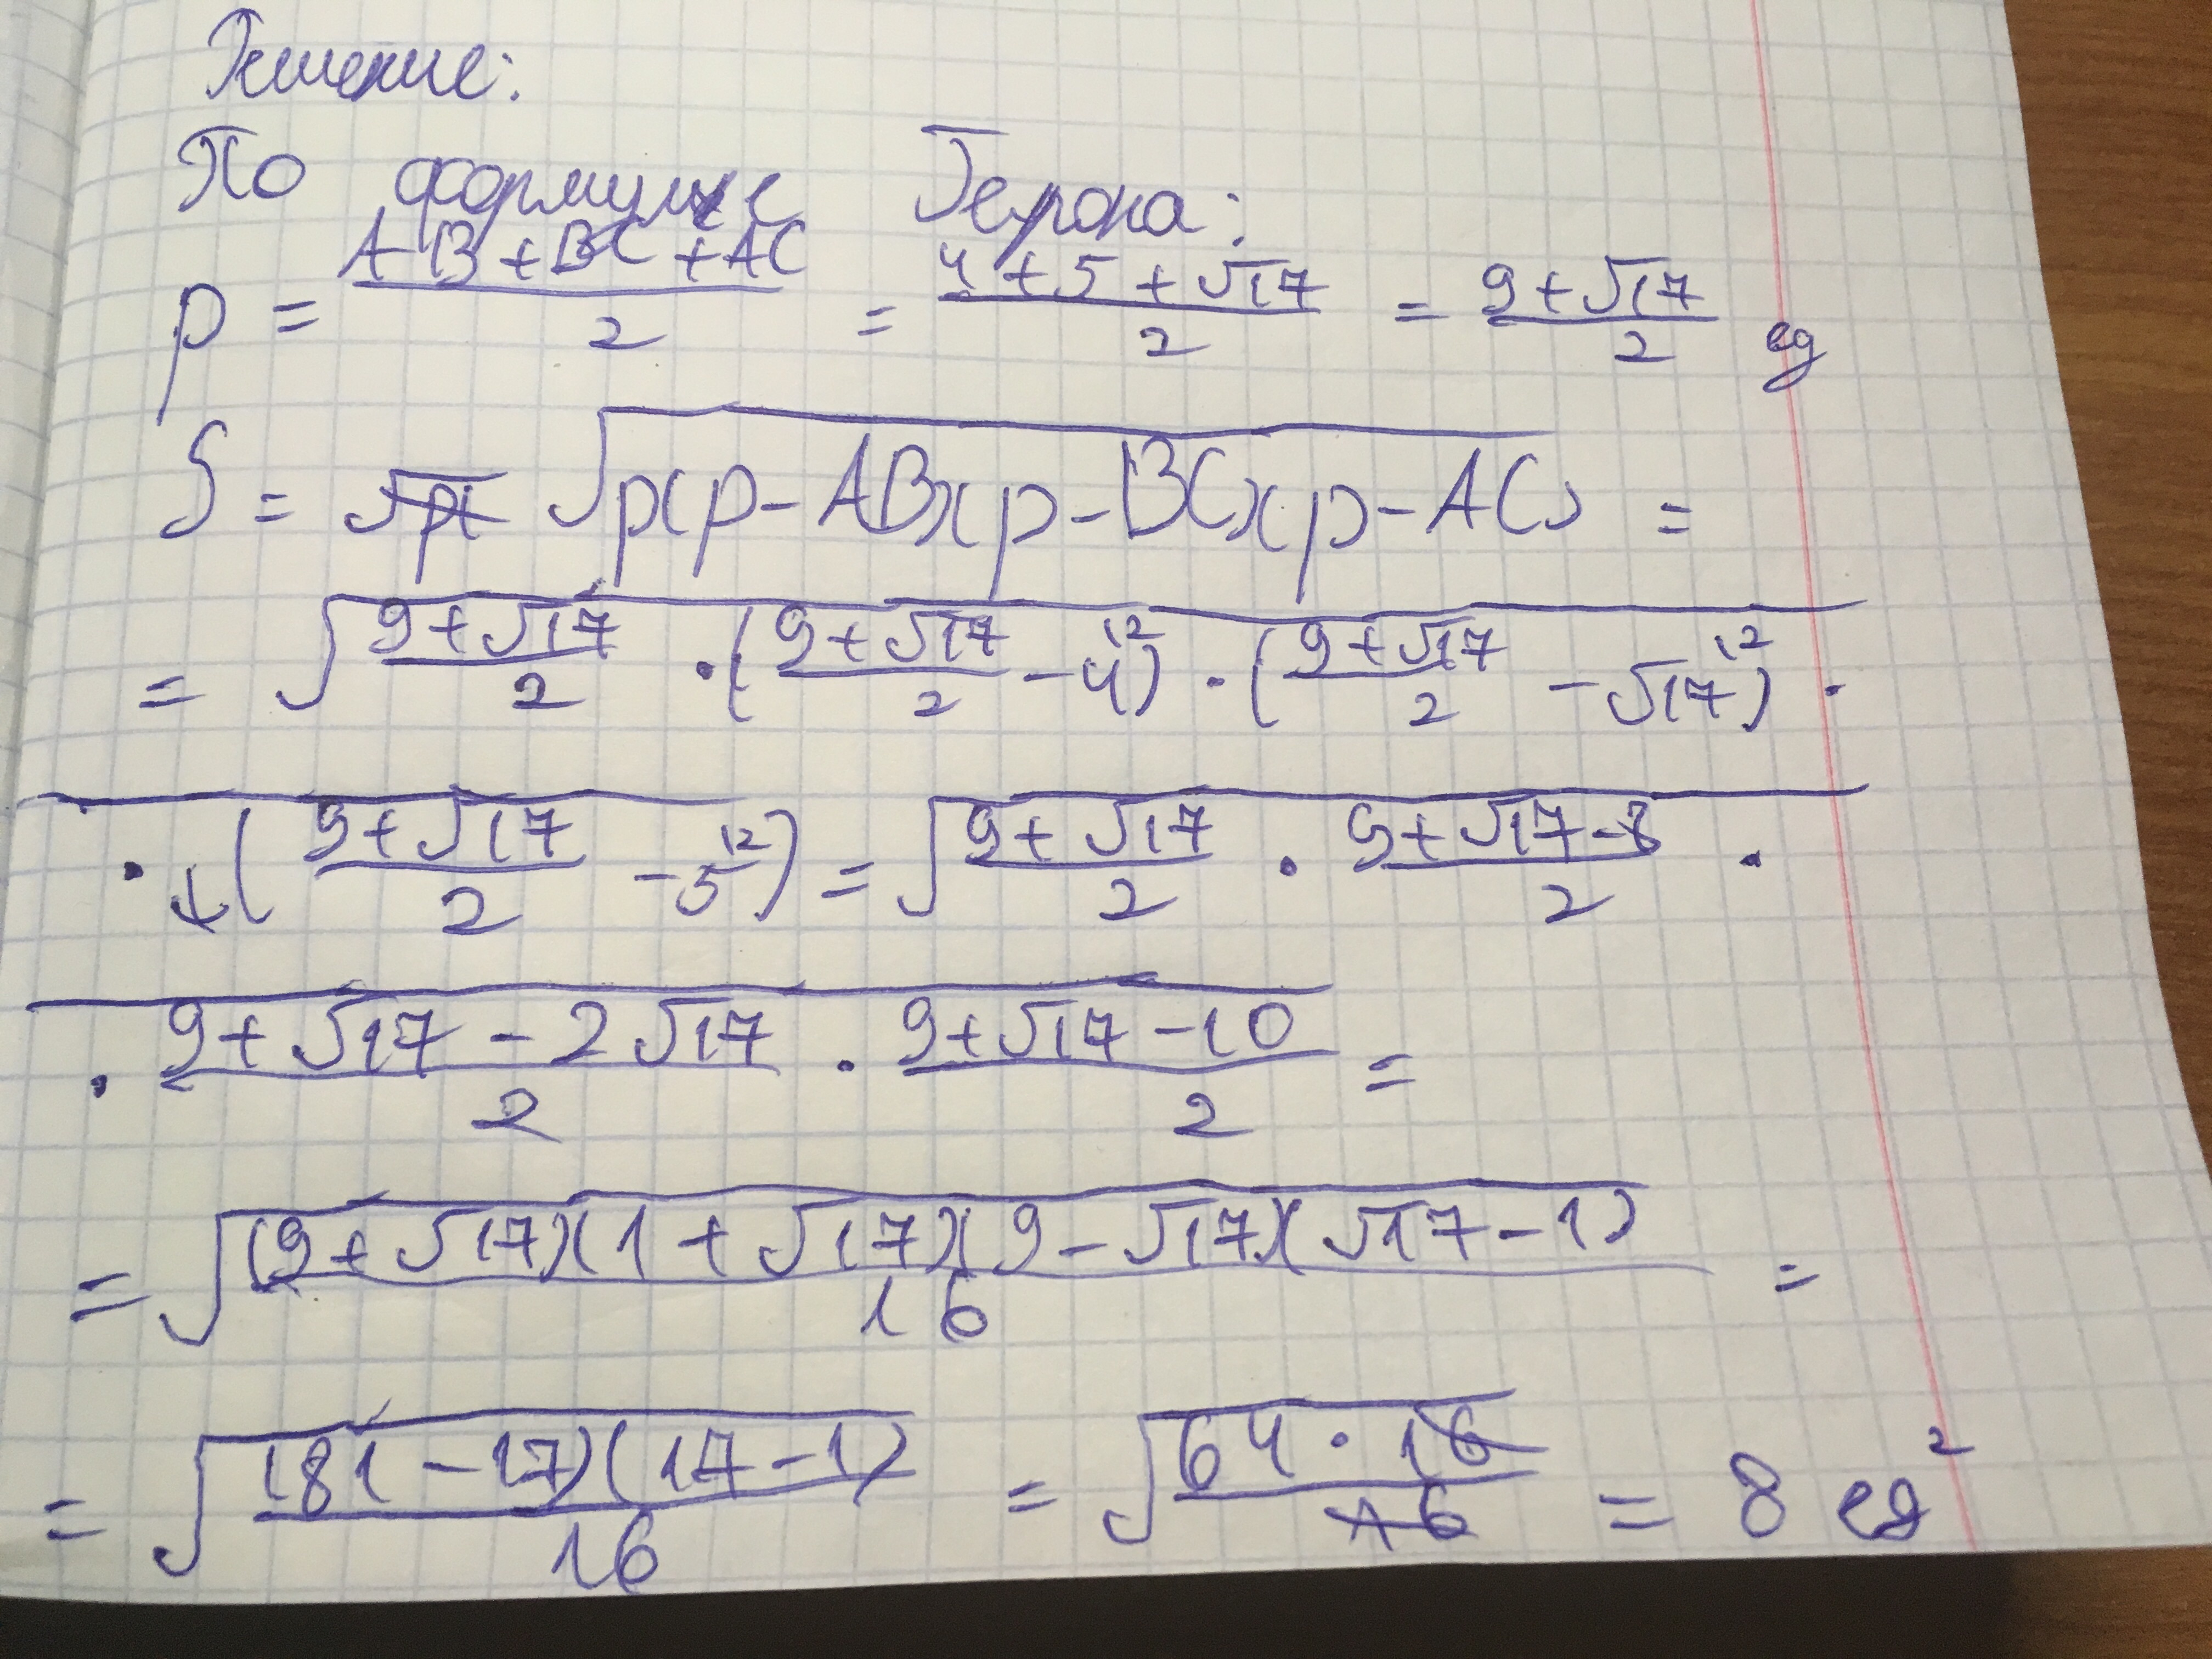 Решение:
По формуле Герона:
p = (AB + BC + AC)/2 = (4 + 5 + √17)/2 = (9 + √17)/2 ед
S = √(p(p - AB)(p - BC)(p - AC)) =
= √((9 + √17)/2 · ((9 + √17)/2 - 4^(12)) · ((9 + √17)/2 - √17^(12)) ·
· ((9 + √17)/2 - 5^(12)) = √((9 + √17)/2 · (9 + √17 - 8)/2 ·
· (9 + √17 - 2√17)/2 · (9 + √17 - 10)/2 =
= √((9 + √17)(1 + √17)(9 - √17)(√17 - 1)/16) =
= √((81 - 17)(17 - 1)/16) = √(64 · 16/16) = 8 ед²